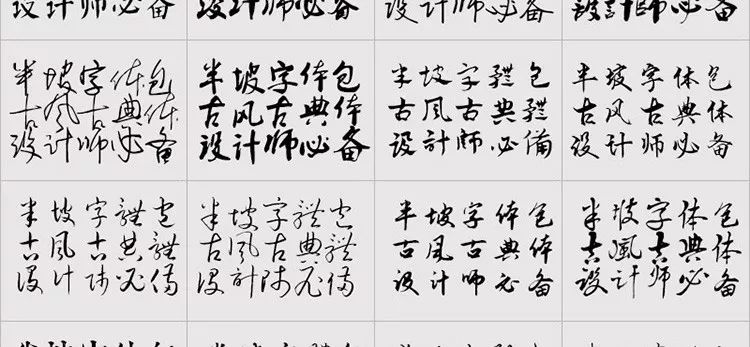 设计师必备
设计师必备
设计师必备
设计师必备
半坡字体包
古风古典体
设计师必备
半坡字体包
古风古典体
设计师必备
半坡字體包
古風古典體
设計師必備
半坡字体包
古风古典体
设计师必备
半坡字體包
古風古典體
设计师必備
半坡字體包
古風古典體
设計师必備
半坡字体包
古風古典体
设计师必备
半坡字体包
古風古典体
设计师必备